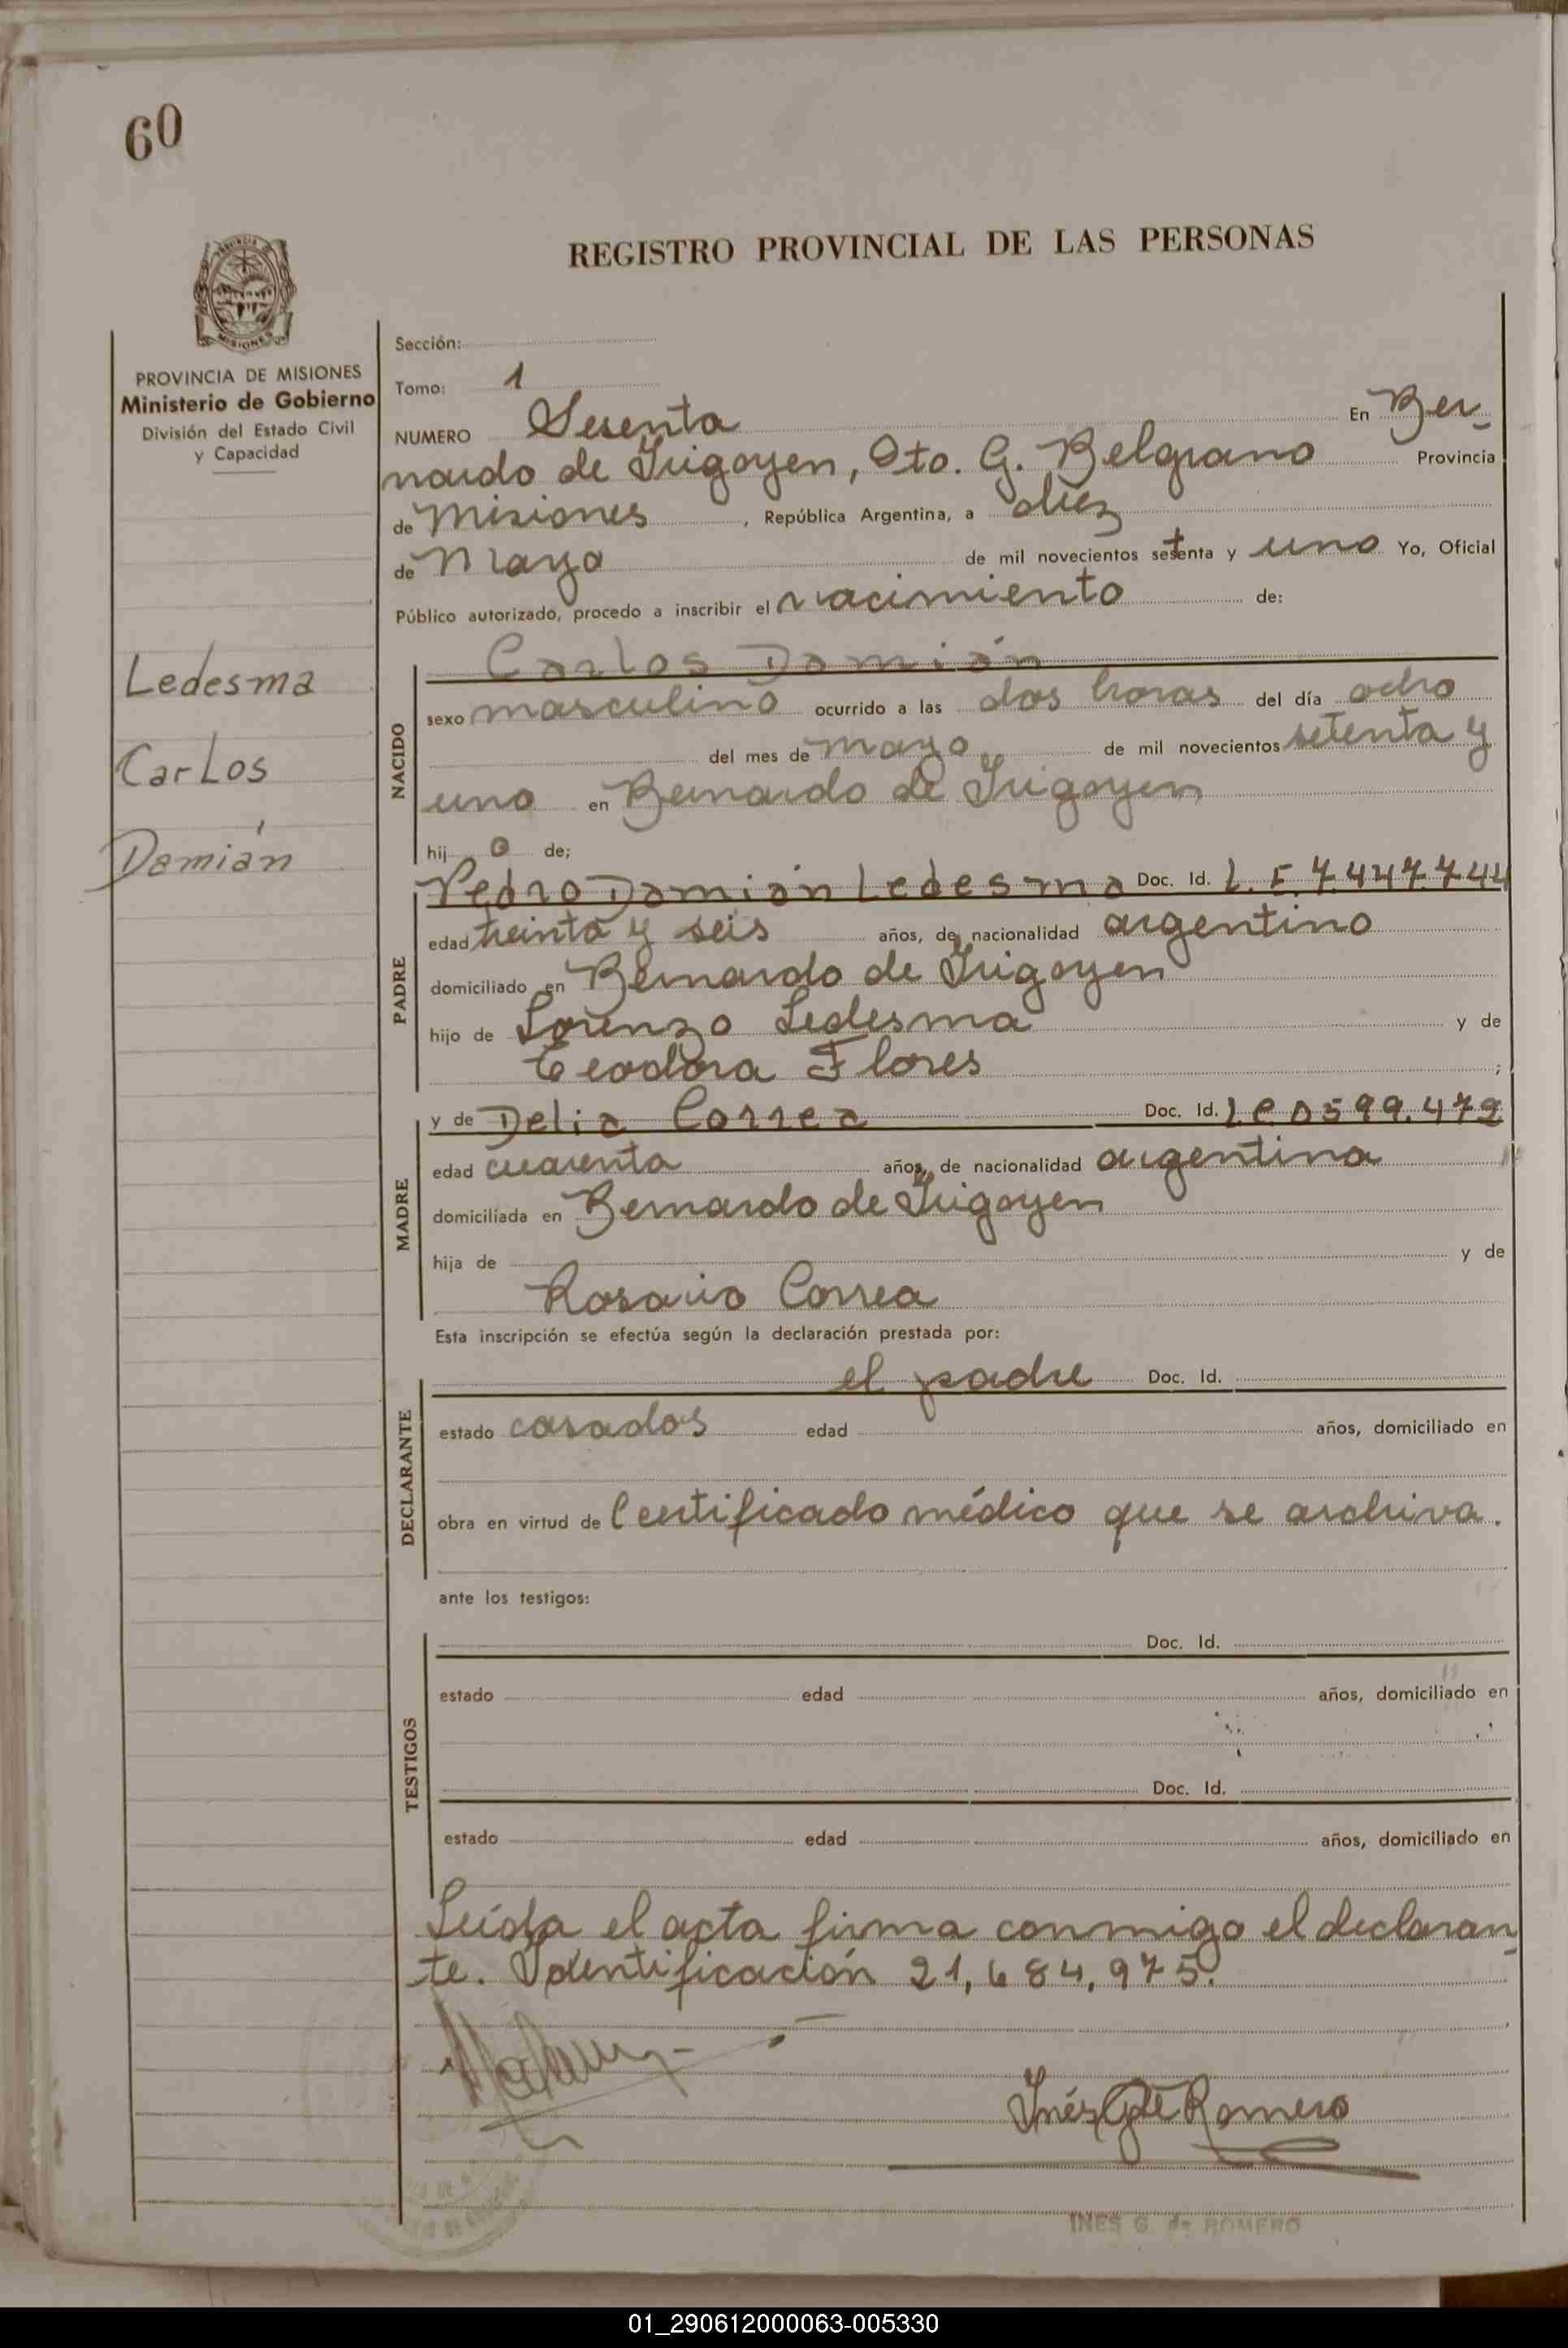 60
REGISTRO PROVINCIAL DE LAS PERSONAS
MISIONES
PROVINCIA DE MISIONES
Ministerio de Gobierno
División del Estado Civil
y Capacidad
Ledesma
Carlos
Damián
Sección:
Tomo: 1
NUMERO Sesenta En Ber-
nardo de Irigoyen, Dto. G. Belgrano Provincia
de Misiones, República Argentina, a diez
de Mayo de mil novecientos setenta y uno Yo, Oficial
Público autorizado, procedo a inscribir el nacimiento de:
Carlos Damián
NACIDO
sexo masculino ocurrido a las dos horas del día ocho
del mes de mayo de mil novecientos setenta y
uno en Bernardo de Irigoyen
hijo de;
Pedro Damián Ledesma Doc. Id. L.E. 7.447.744
PADRE
edad treinta y seis años, de nacionalidad argentino
domiciliado en Bernardo de Irigoyen
hijo de Lorenzo Ledesma y de
Teodora Flores ;
MADRE
y de Delia Correa Doc. Id. L.C 0599.472
edad cuarenta años, de nacionalidad argentina
domiciliada en Bernardo de Irigoyen
hija de y de
Rosario Correa
Esta inscripción se efectúa según la declaración prestada por:
DECLARANTE
el padre Doc. Id.
estado casados edad años, domiciliado en
obra en virtud de Certificado médico que se archiva.
ante los testigos:
TESTIGOS
Doc. Id.
estado edad años, domiciliado en
Doc. Id.
estado edad años, domiciliado en
Leída el acta firma conmigo el declaran-
te. Identificación 21,684,975.
Inés G de Romero
INES G. de ROMERO
01_290612000063-005330